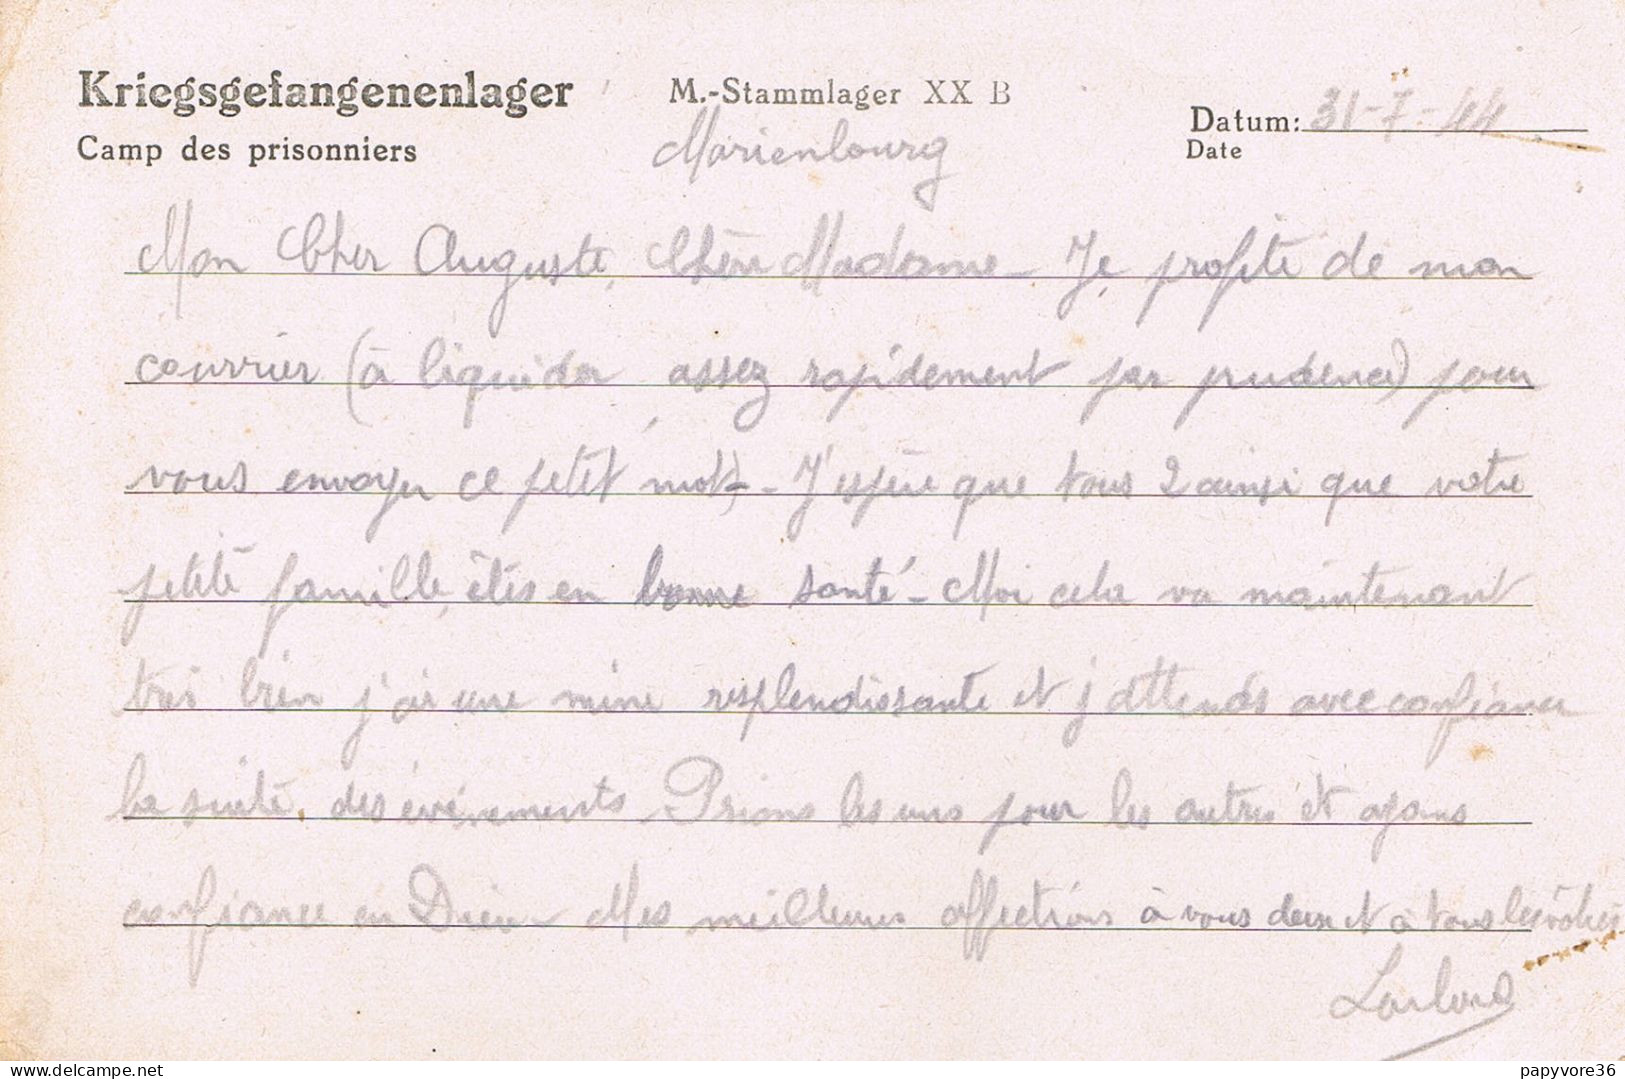 Kriegsgefangenenlager M.-Stammlager XX B
Datum: 31-7-44
Camp des prisonniers Marienbourg
Date
Mon Cher Auguste, Chère Madame - Je profite de mon
courrier (à liquider assez rapidement par prudence) pour
vous envoyer ce petit mot - J'espère que tous 2 ainsi que votre
petite famille, êtes en bonne santé - Moi cela va maintenant
très bien j'ai une mine resplendissante et j'attends avec confiance
la suite des événements - Prions les uns pour les autres et ayons
confiance en Dieu - Mes meilleures affections à vous deux et à tous les vôtres
delcampe.net
papyvore36